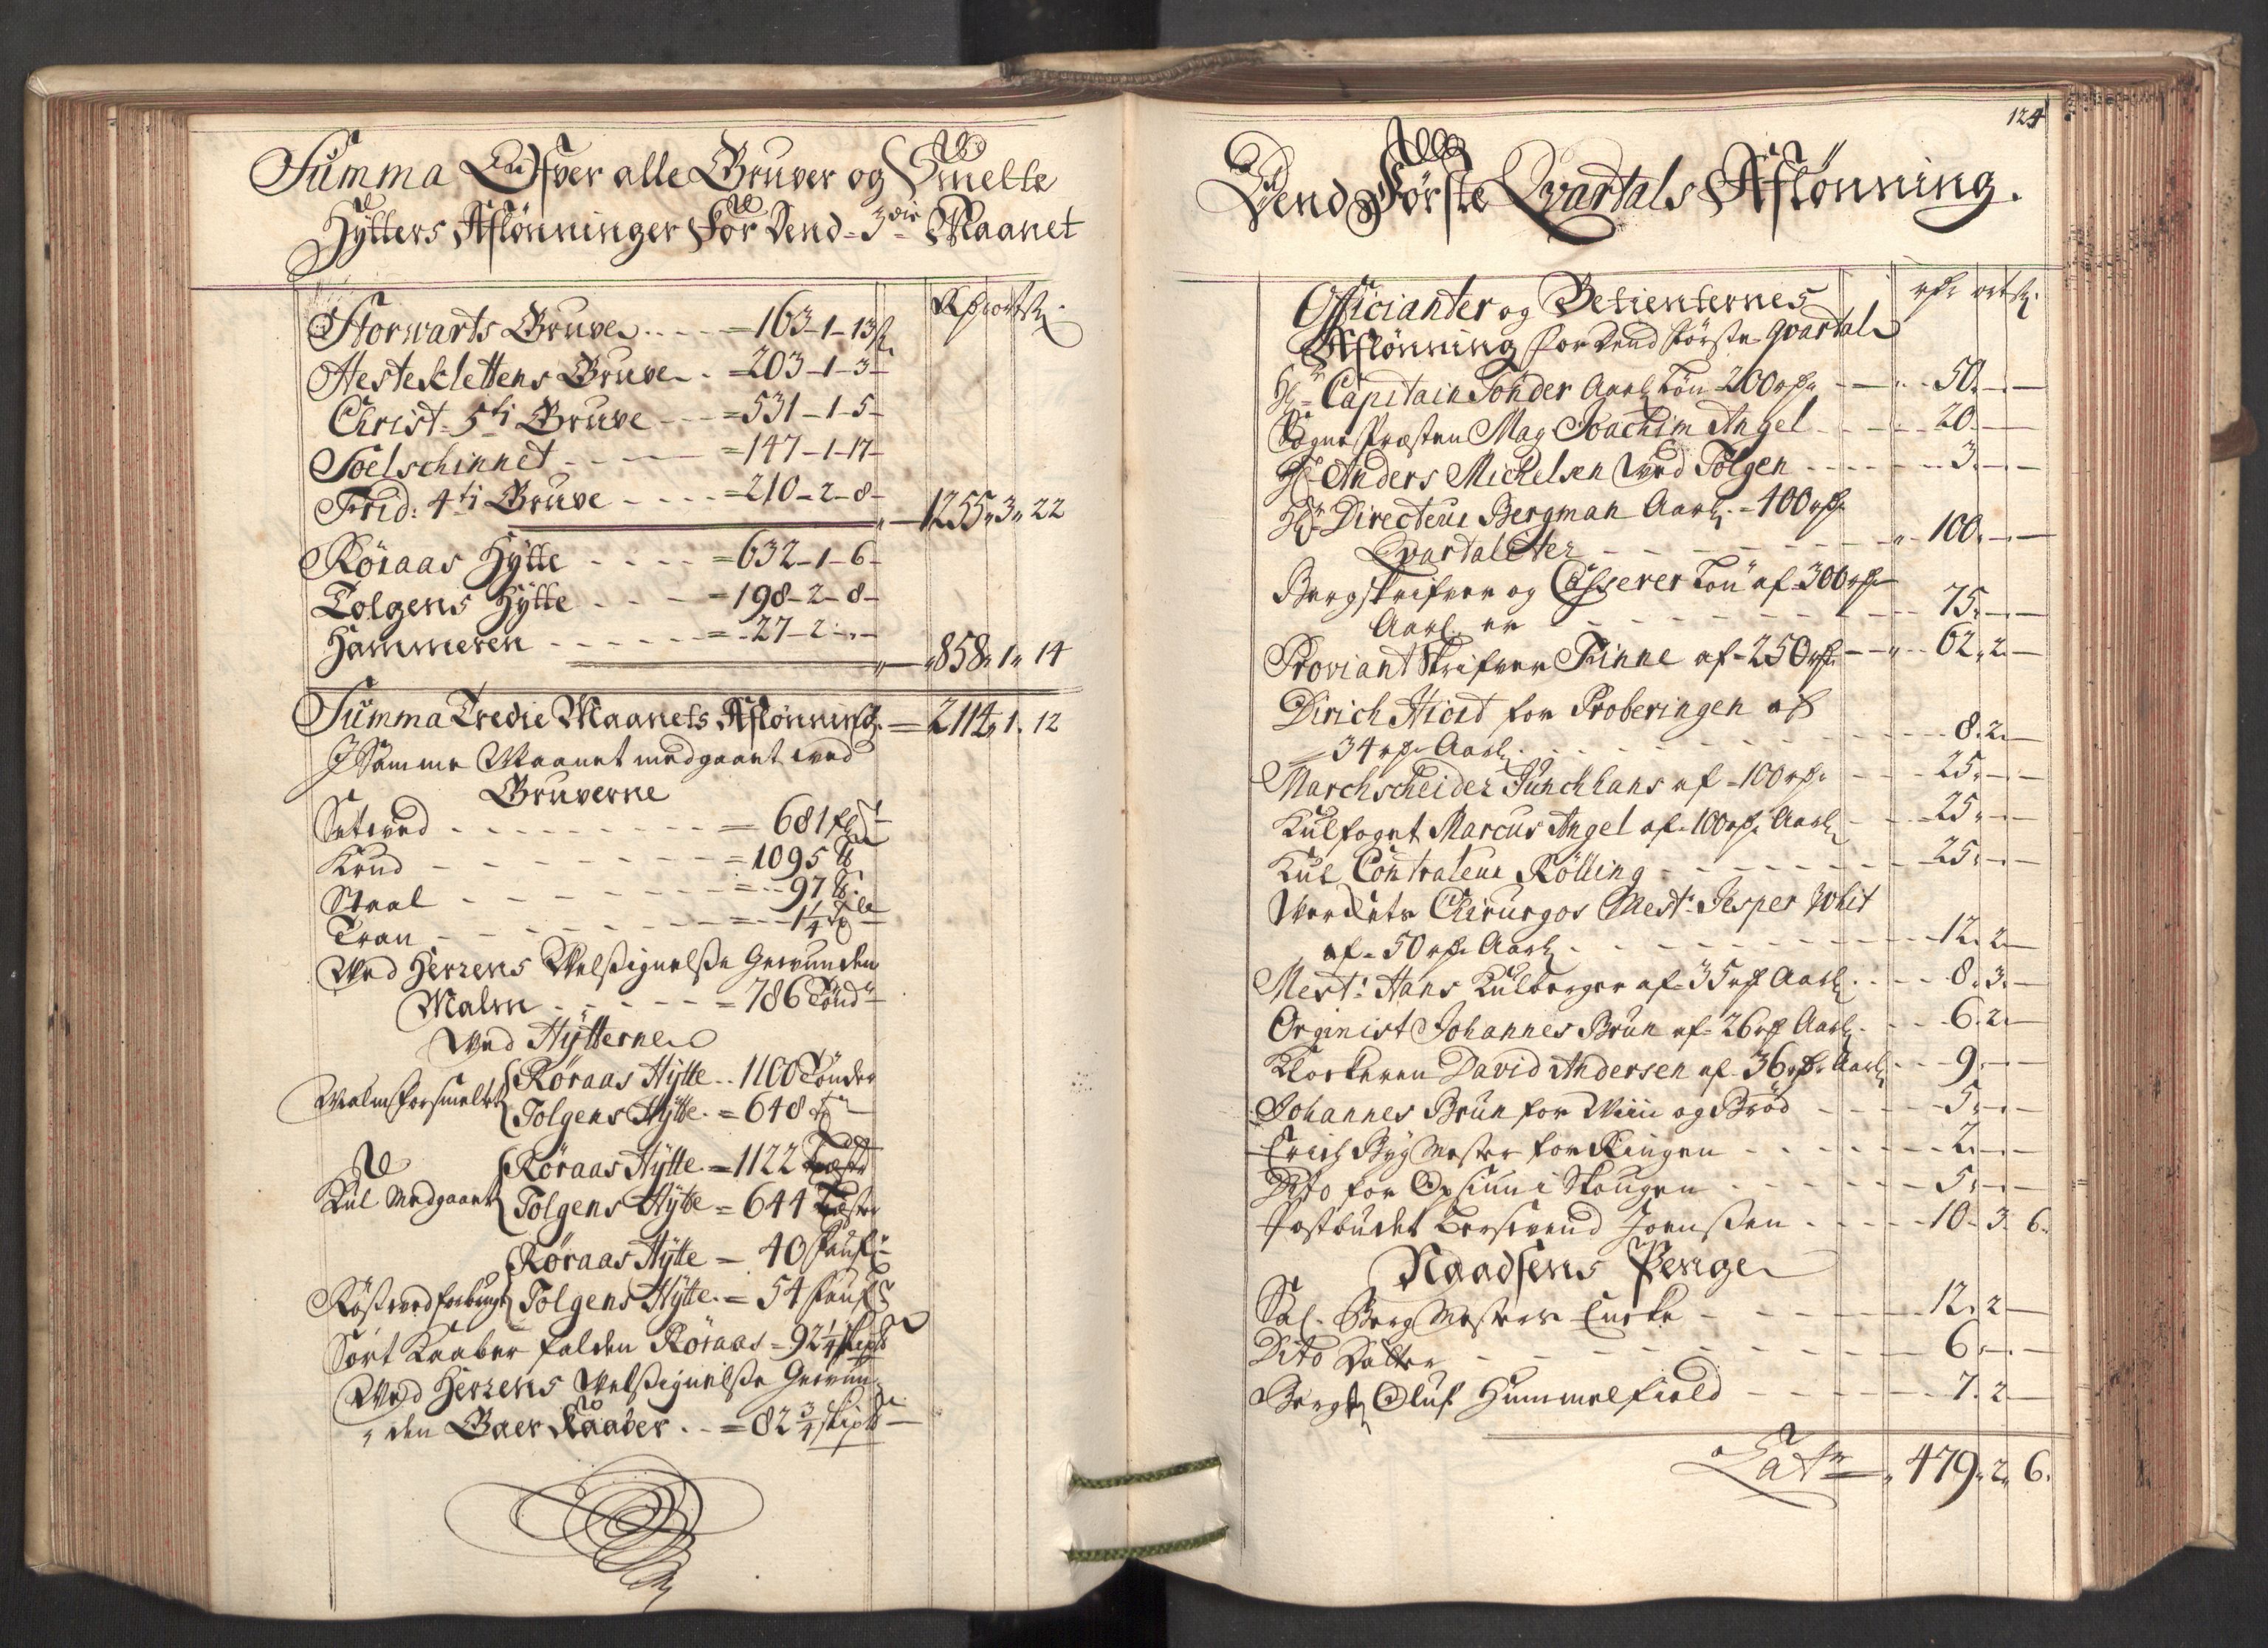 Summa Ofver alle Gruver og Smelte
Hytters Aflønninger For Dend 3die Maanet
Rdr ort sk.
Storwarts Gruve = 163-1-13 sk
Hesteklettens Gruve = 203-1-3-
Christ. 5ti Gruve = 531-1-5-
Soelschinnet = 147-1-17-
Frid: 4ti Gruve = 210-2-8-
1255 " 3 " 22
Røraas Hytte = 632-1-6-
Tolgens Hytte = 198-2-8-
Hammeren = 27-2-"-
858 " 1 " 14
Summa Tredie Maanets Aflønning = 2114 " 1 " 12
I Samme Maanet medgaaet ved
Gruverne
Setved = 681 fl
Krud = 1095 ℔
Staal = 97 ℔
Tran = 1 1/4 Tde
Ved Herrens Velsignelse Gewunden
Malm = 786 Tønder
Ved Hytterne
Malm forsmeltet { Røraas Hytte 1100 Tønder
Tolgens Hytte = 648 Tr
Kul Medgaaet { Røraas Hytte = 1122 Læster
Tolgens Hytte = 644 Læster
Røraas Hytte = 40 faufn
Røstved forbrugt { Tolgens Hytte = 54 faufn
Sort Kaaber falden Røraas = 92 1/4 skip℔
Ved Herrens Velsignelse Gewun-
den Gaer Kaaber = 82 3/4 skip℔

124
Dend Første Qvartals Aflønning.
rdr ort sk.
Officianter og Betienternes
Aflønning for Dend første Qvartal
Hr Capitain Sonder Aarl. Løn 200 rdr 50 " - " -
Sogne Præsten Mag Joachim Angel 20 " - " -
Hr Anders Michelsen ved Tolgen 3 " - " -
Hr Directeur Bergman Aarl. - 400 rdr
Qvartaliter 100 " - " -
Bergskrifver og Casserer Løn af 300 rdr
Aarl. er 75 " - " -
Proviant Skrifver Finne af 250 rdr 62 " 2 " -
Dirich Hiort for Proberingen af
34 rdr Aarl. 8 " 2 " -
Marchscheider Junchhans af 100 rdr 25 " - " -
Kulfoget Marcus Angel af 100 rdr Aarl 25 " - " -
Kul Contraleur Rölling 25 " - " -
Verckets Chirurgos Mestr Jesper Whit
af 50 rdr Aarl 12 " 2 " -
Mestr Hans Kulberger af 35 rdr Aarl. 8 " 3 " -
Orginist Johannes Brun af 26 rdr Aarl. 6 " 2 " -
Klockeren David Andersen af 36 rdr Aarl 9 " - " -
Johannes Brun for Wiin og Brød 5 " - " -
Erich Byg Mester for Ringen 2 " - " -
Dito for Opsiun i Skougen 5 " - " -
Postbudet Joensen 10 " 3 " 6
Naadsens Penge
Sal. Berg Mesters Encke 12 " 2 " -
Dito Datter 6 " - " -
Oluf Hummelfield 7 " 2 " -
Lats 479 " 2 " 6